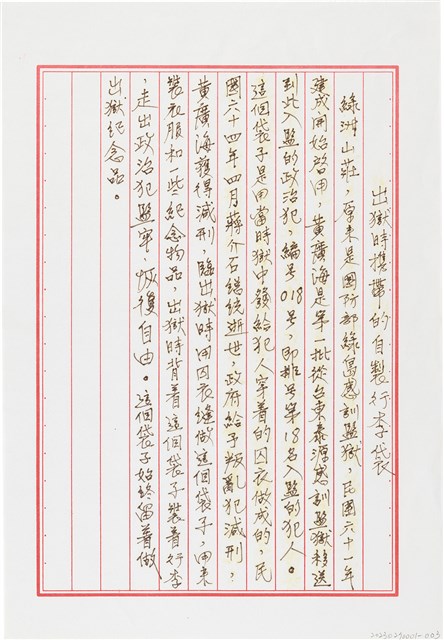 出獄時携帶的自製行李袋
綠洲山莊，原來是國防部綠島感訓監獄，民國六十一年
建成開始啓用，黃廣海是第一批從台東泰源感訓監獄移送
到此入監的政治犯，編号018号，即排号第18名入監的犯人。
這個袋子是用當時獄中發給犯人穿着的囚衣做成的，民
國六十四年四月蔣介石總統逝世，政府給予叛亂犯減刑，
黃廣海獲得減刑，臨出獄時用囚衣縫做這個袋子，用來
裝衣服和一些紀念物品，出獄時背着這個袋子裝着行李
，走出政治犯監牢，恢復自由。這個袋子始終留着做
出獄紀念品。
2023029001-003